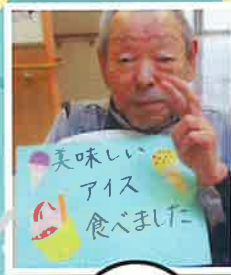 美味しい
アイス
食べました